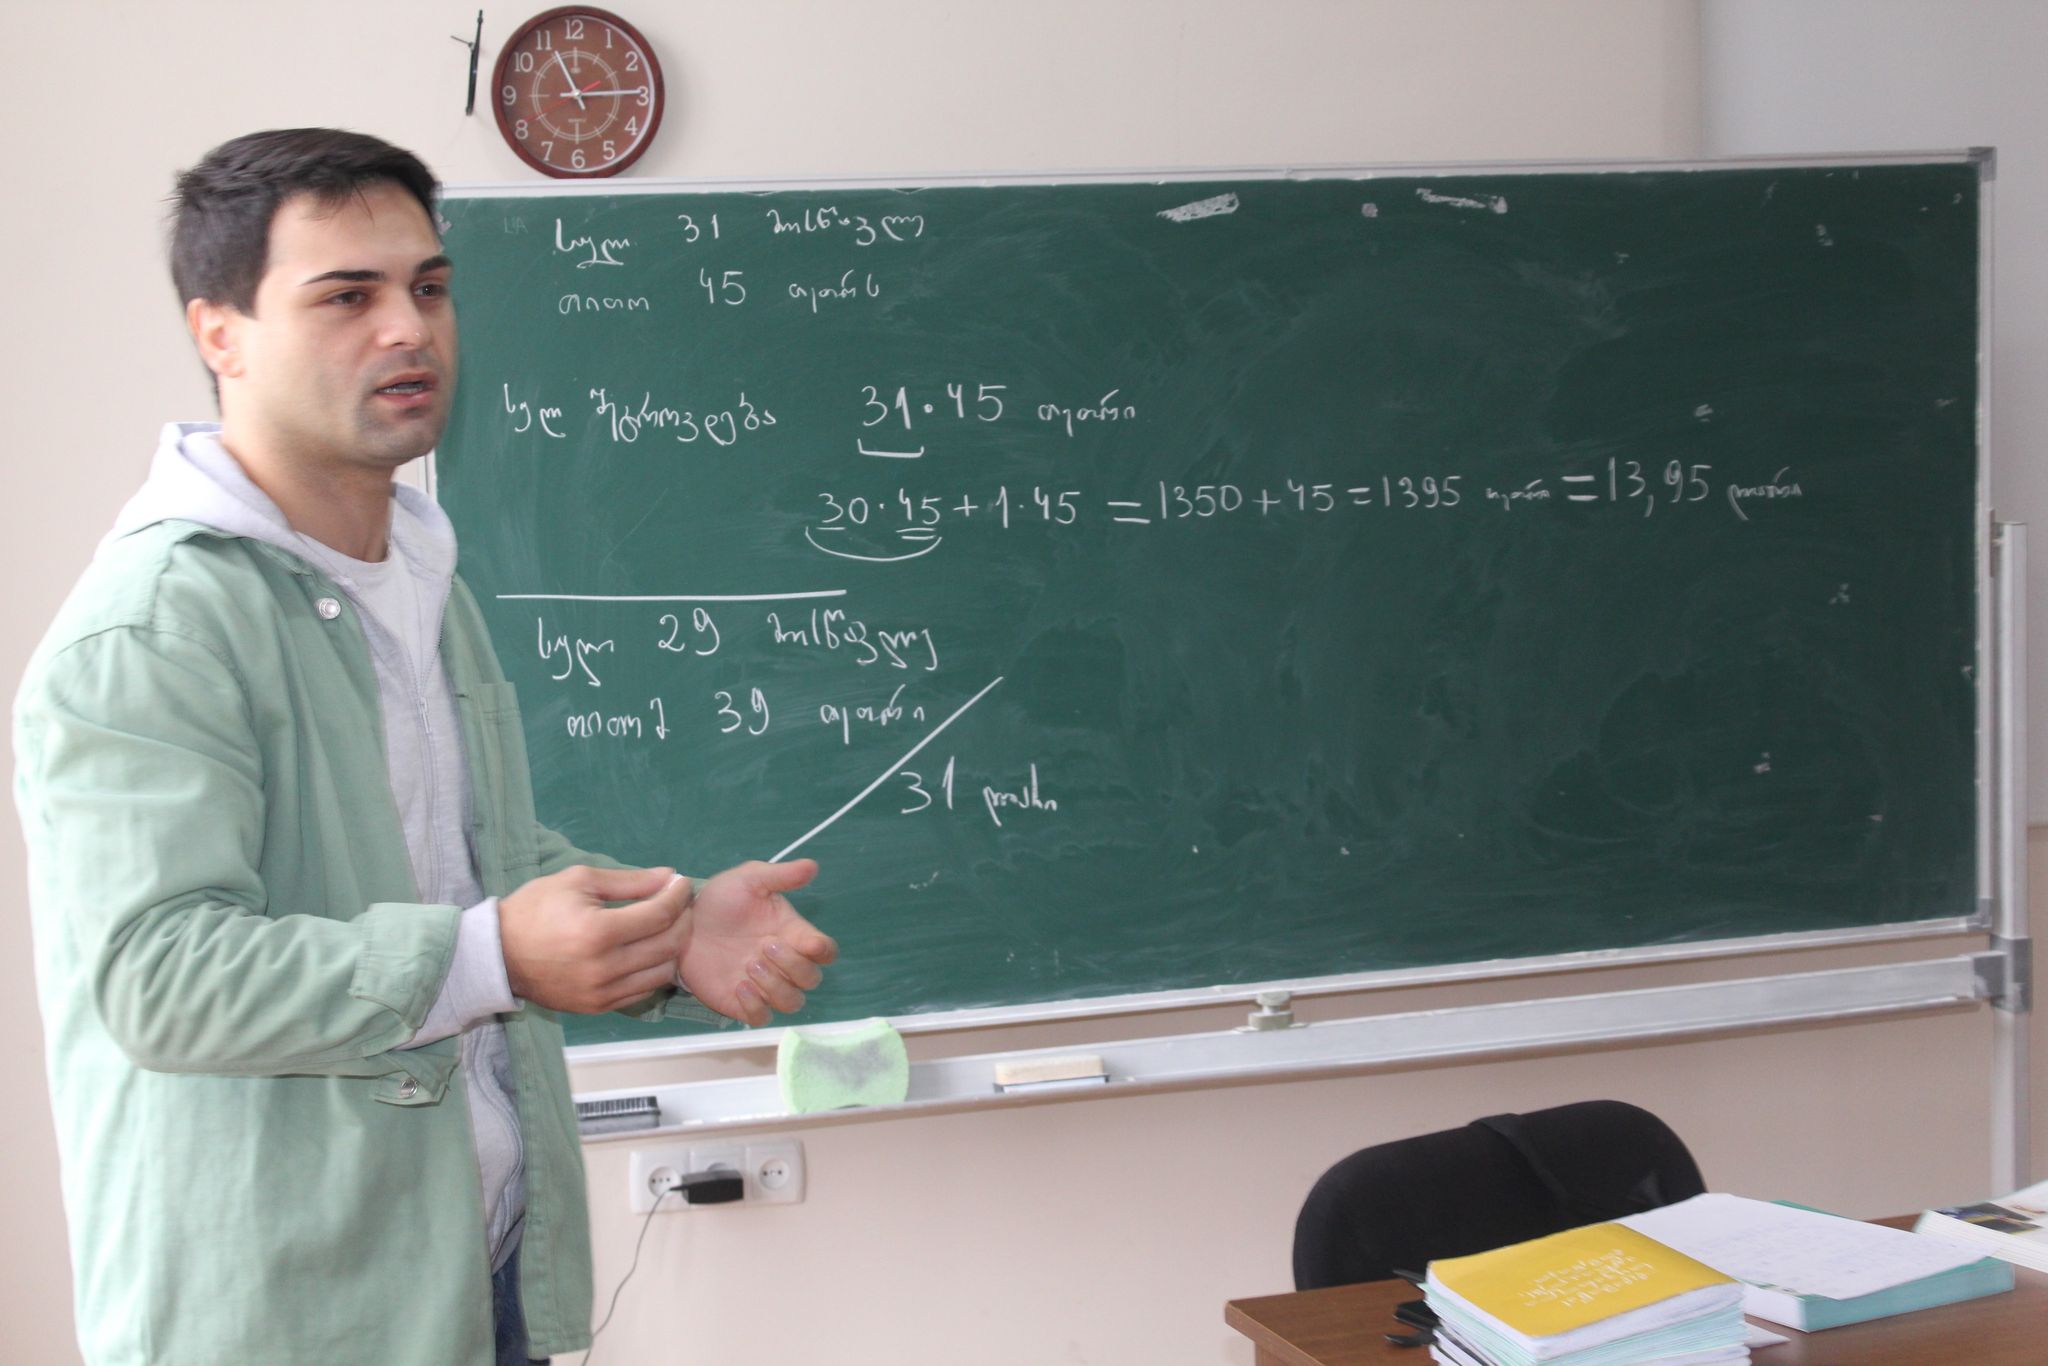 12 1 2 3 4 5 6 7 8 9 10 11
სულ 31 მოსწავლე
თითო 45 თეთრს
სულ შეგროვდება 31·45 თეთრი
30·45+1·45 =1350+45=1395 თეთრი =13,95 ლარი
სულ 29 მოსწავლე
თითომ 39 თეთრი
31 ლარი